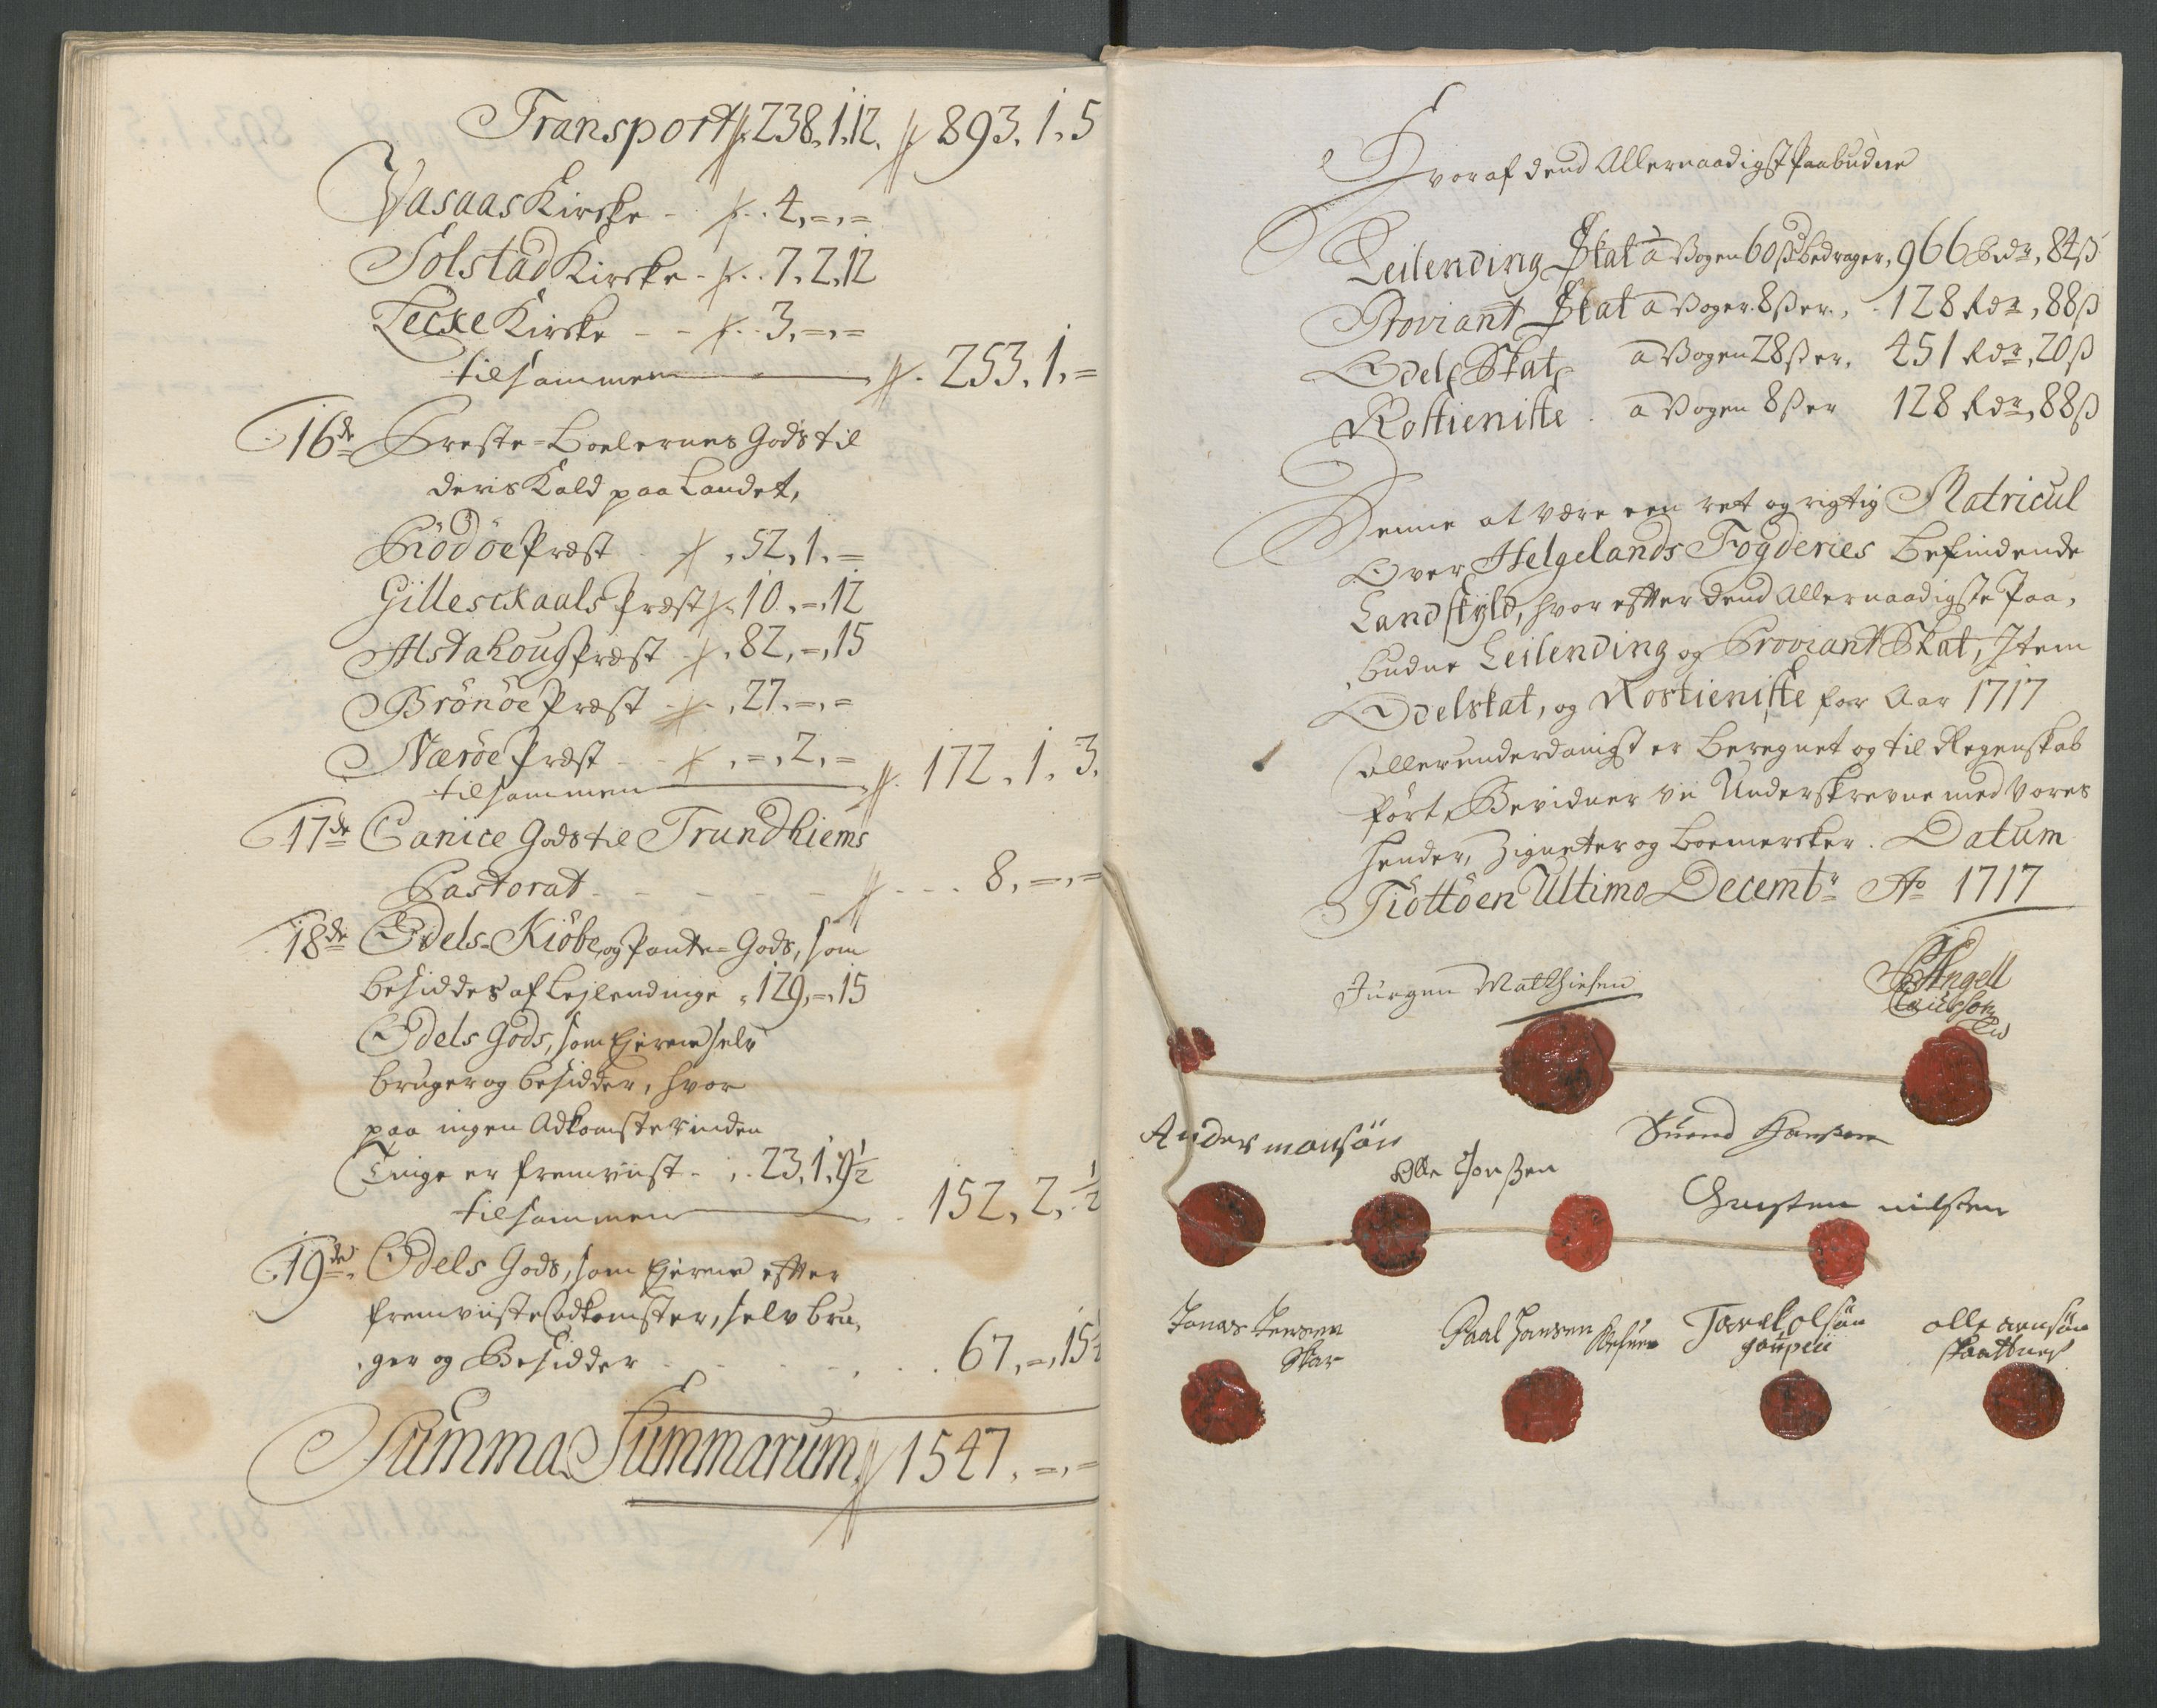 Transport 238,1,12. 893,1,5
Vasaas Kirche - 4,=,=
Solstad Kirche - 7,2,12
Lecke Kirche - - 3,=,=
tilsammen 253,1,=
16de Preste-Boelernes Gods til
deris Kald paa Landet,
Rödöe Præst 52,1,=
Gillesckaals Præst 10,=,12
Alstahoug Præst 82,=,15
Brönöe Præst 27,=,=
Næröe Præst - - ,=,2,=
tilsammen 172,1,3,
17de Canice Gods til Trundhiems
Pastorat - - - - - 8,=,=
18de Odels-Kiöbe og Pante-Gods, som
besiddes af Lejlendinge 129,=,15
Odels Gods, som Ejerne selv
bruger og besidder, hvor
paa ingen Adkomster inden
Tinge er fremviist - 23,1,1½
tilsammen 152,2,½
19de Odels Gods, som Ejerne efter
fremviiste Adkomster, selv bru,
,ger og Besidder 67,=,15½
Summa Summarum 1547,=,=
Hvoraf dend Allernaadigst Paabudne
Leilending Skat a Vogen 60 ß bedrager, 966 Rdr, 84 ß
Proviant Skat a Voger 8 ß er, 128 Rdr, 88 ß
Odels Skat a Vogen 28 ß er, 451 Rdr, 20 ß
Rostieniste a Vogen 8 ß er 128 Rdr, 88 ß
Denne at være een ret og rigtig Matricul
Over Helgelands Fogderies Befindende
Landskyld, hvor efter dend Allernaadigste Paa,
,budne Leilending og Proviant Skat, Item
Odelskat, og Rostieniste for Aar 1717
Allerunderdanigst er beregnet og til Regenskab
fört, Bevidner vii Underskrevne med Vores
hender, Zigneter og Boemercker. Datum
Tiöttöen Ultimo Decembr Ao 1717
Jurgen Matthiesen
Angell
Anders monsön
Olle Jonßen
Suend Hanßen
Christen nilsen
Jonas Jensen
Skar
Paal Hansen
Tarald olsön
olle arnsön